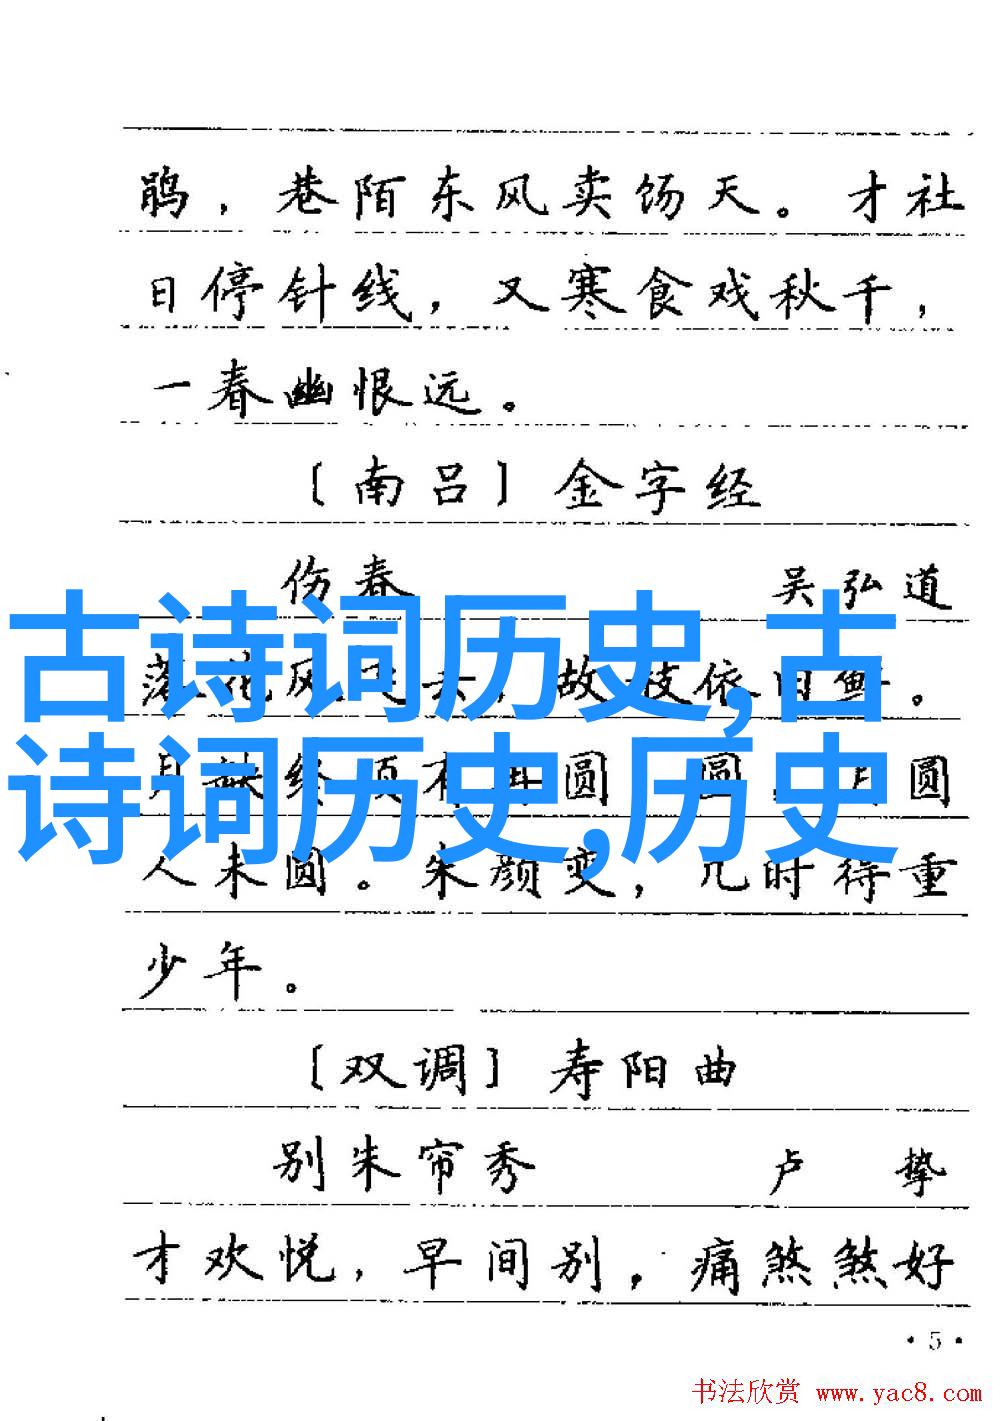 鹃，巷陌东风卖饧天。才社
日停针线，又寒食戏秋千，
一春幽恨远。
〔南吕〕金字经
伤春 吴弘道
古诗词历史,古
落花风飞去，故枝依旧鲜。
诗词历史,历史
月缺终须有再圆 圆 月圆
人未圆。朱颜变，几时得重
少年。
〔双调〕寿阳曲
别朱帘秀 卢挚
才欢悦，早间别，痛煞煞好
·5·
书法欣赏 www.yac8.com